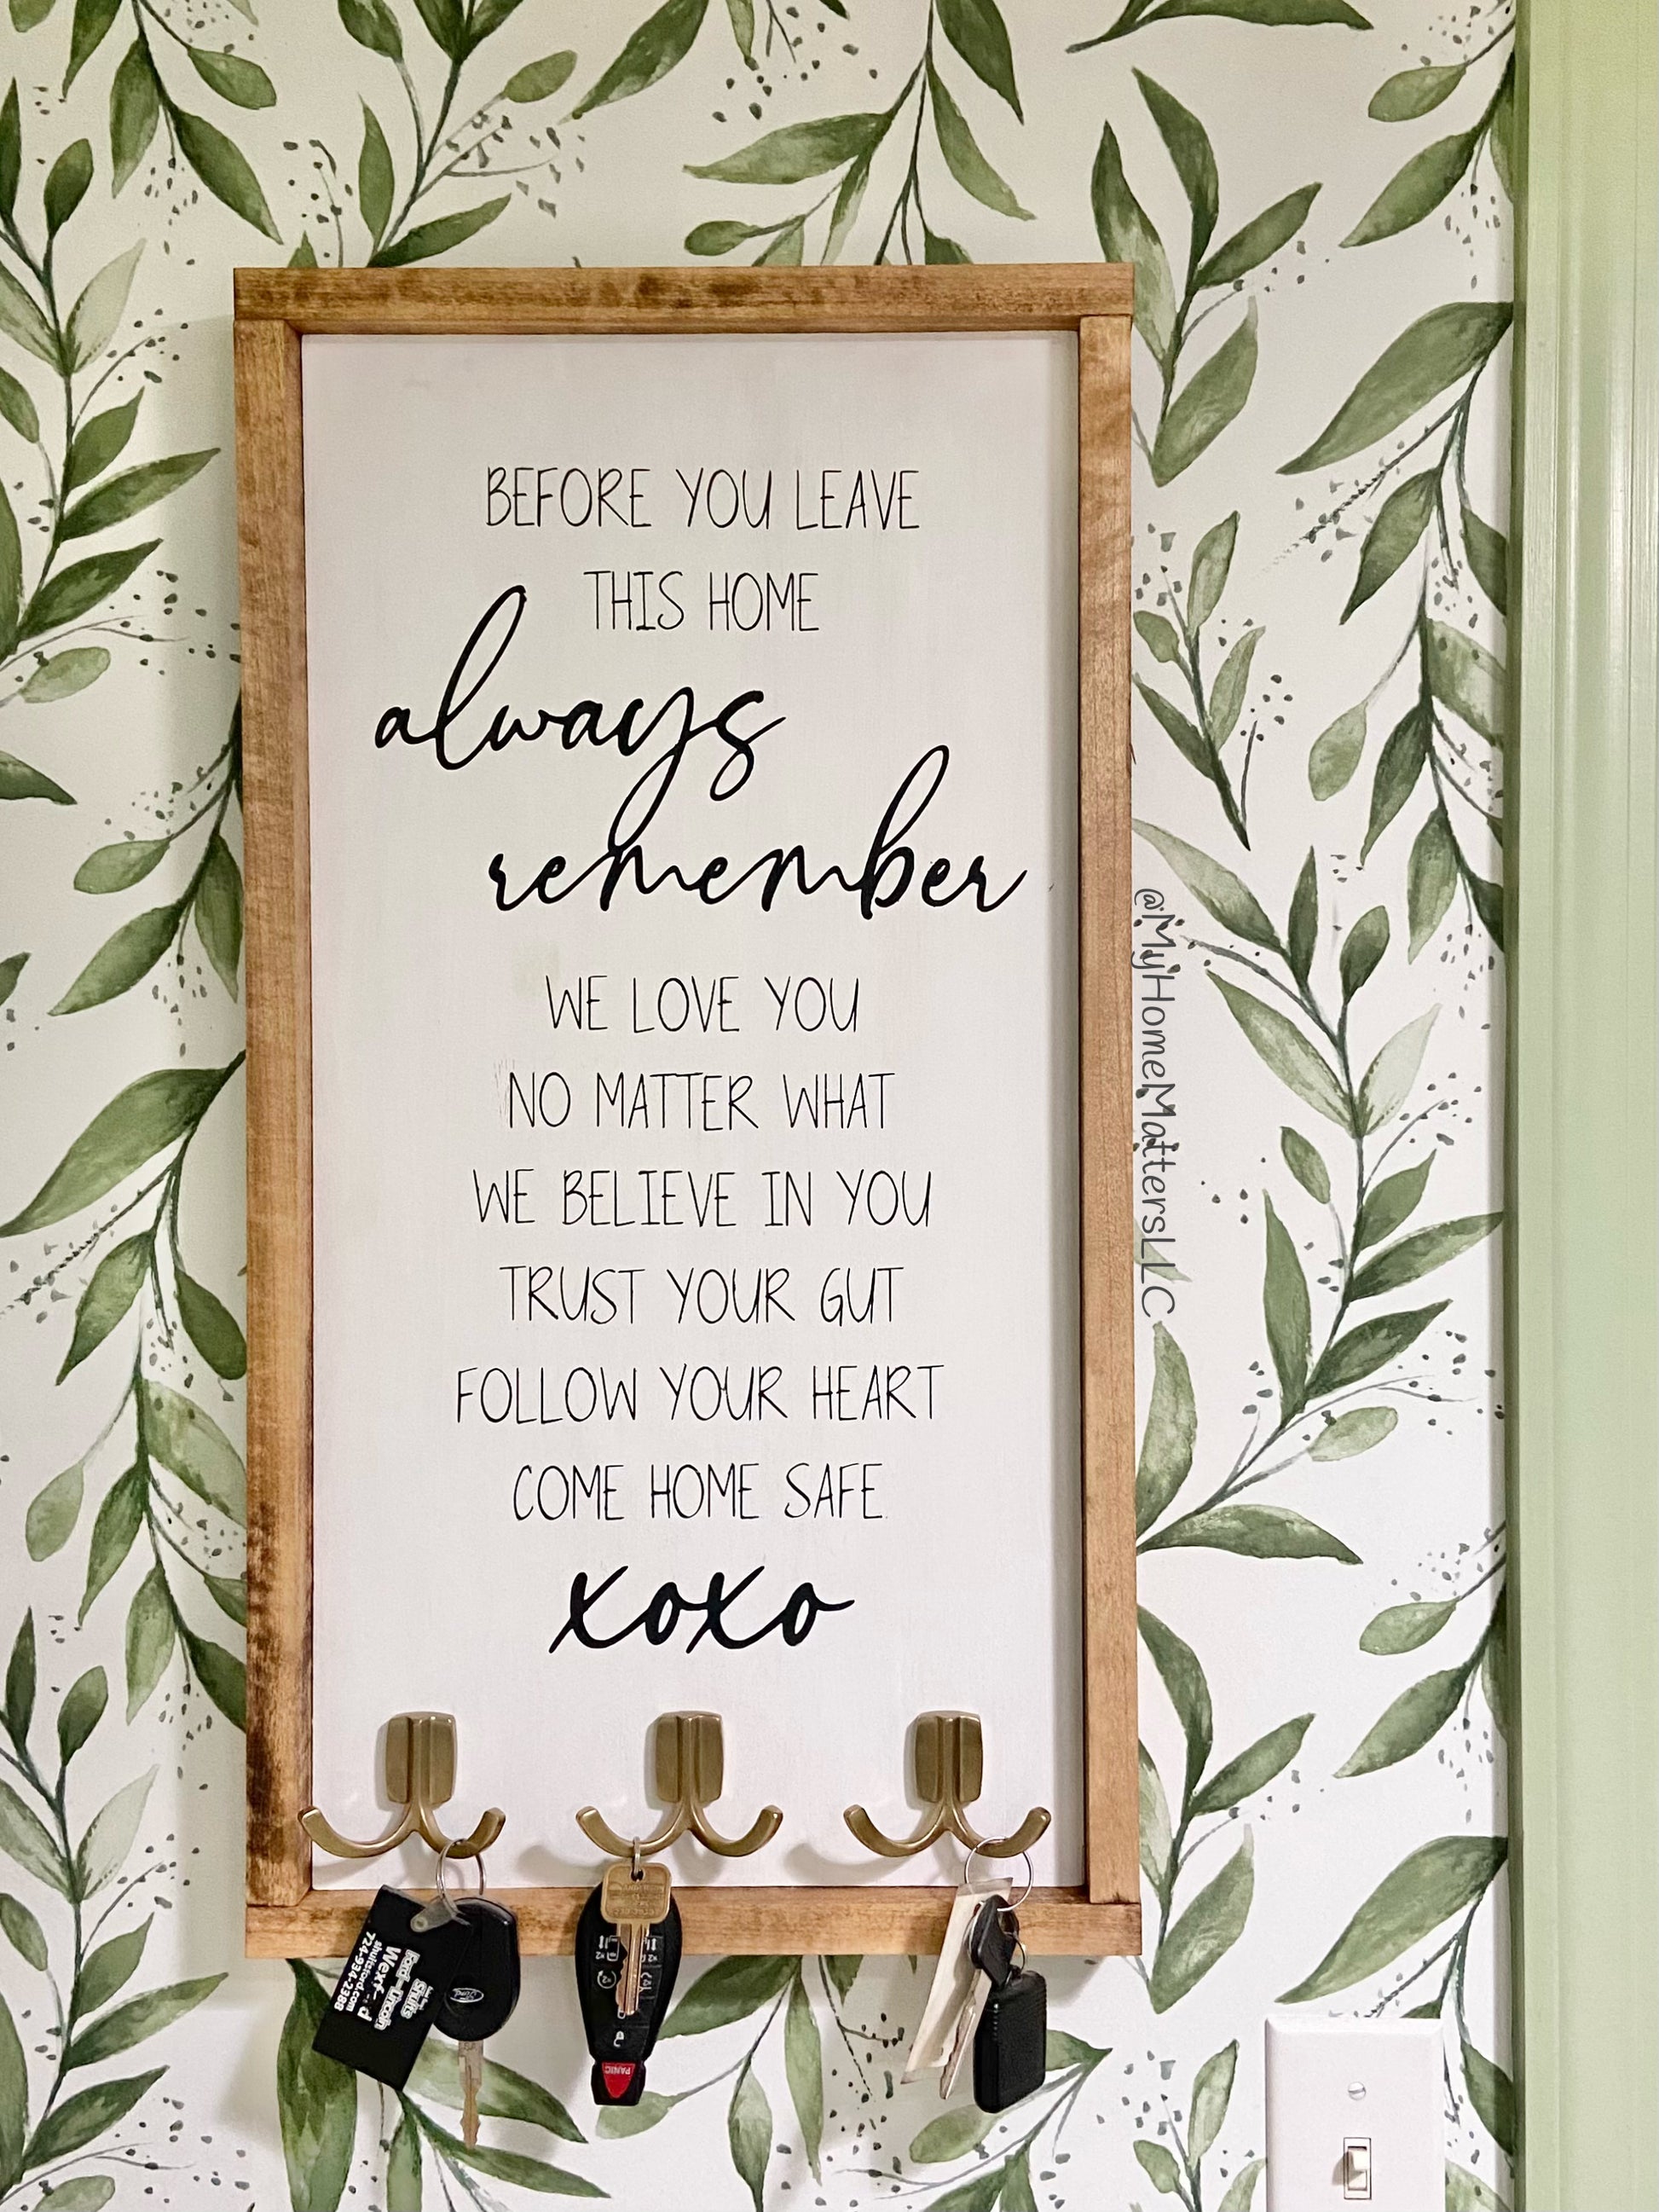 BEFORE YOU LEAVE
THIS HOME
always
remember
WE LOVE YOU
NO MATTER WHAT
WE BELIEVE IN YOU
TRUST YOUR GUT
FOLLOW YOUR HEART
COME HOME SAFE
xoxo
@MyHomeMattersLLC
Shults
Ford-Lincoln
shultsford.com
724-934-2388
Ford
PANIC